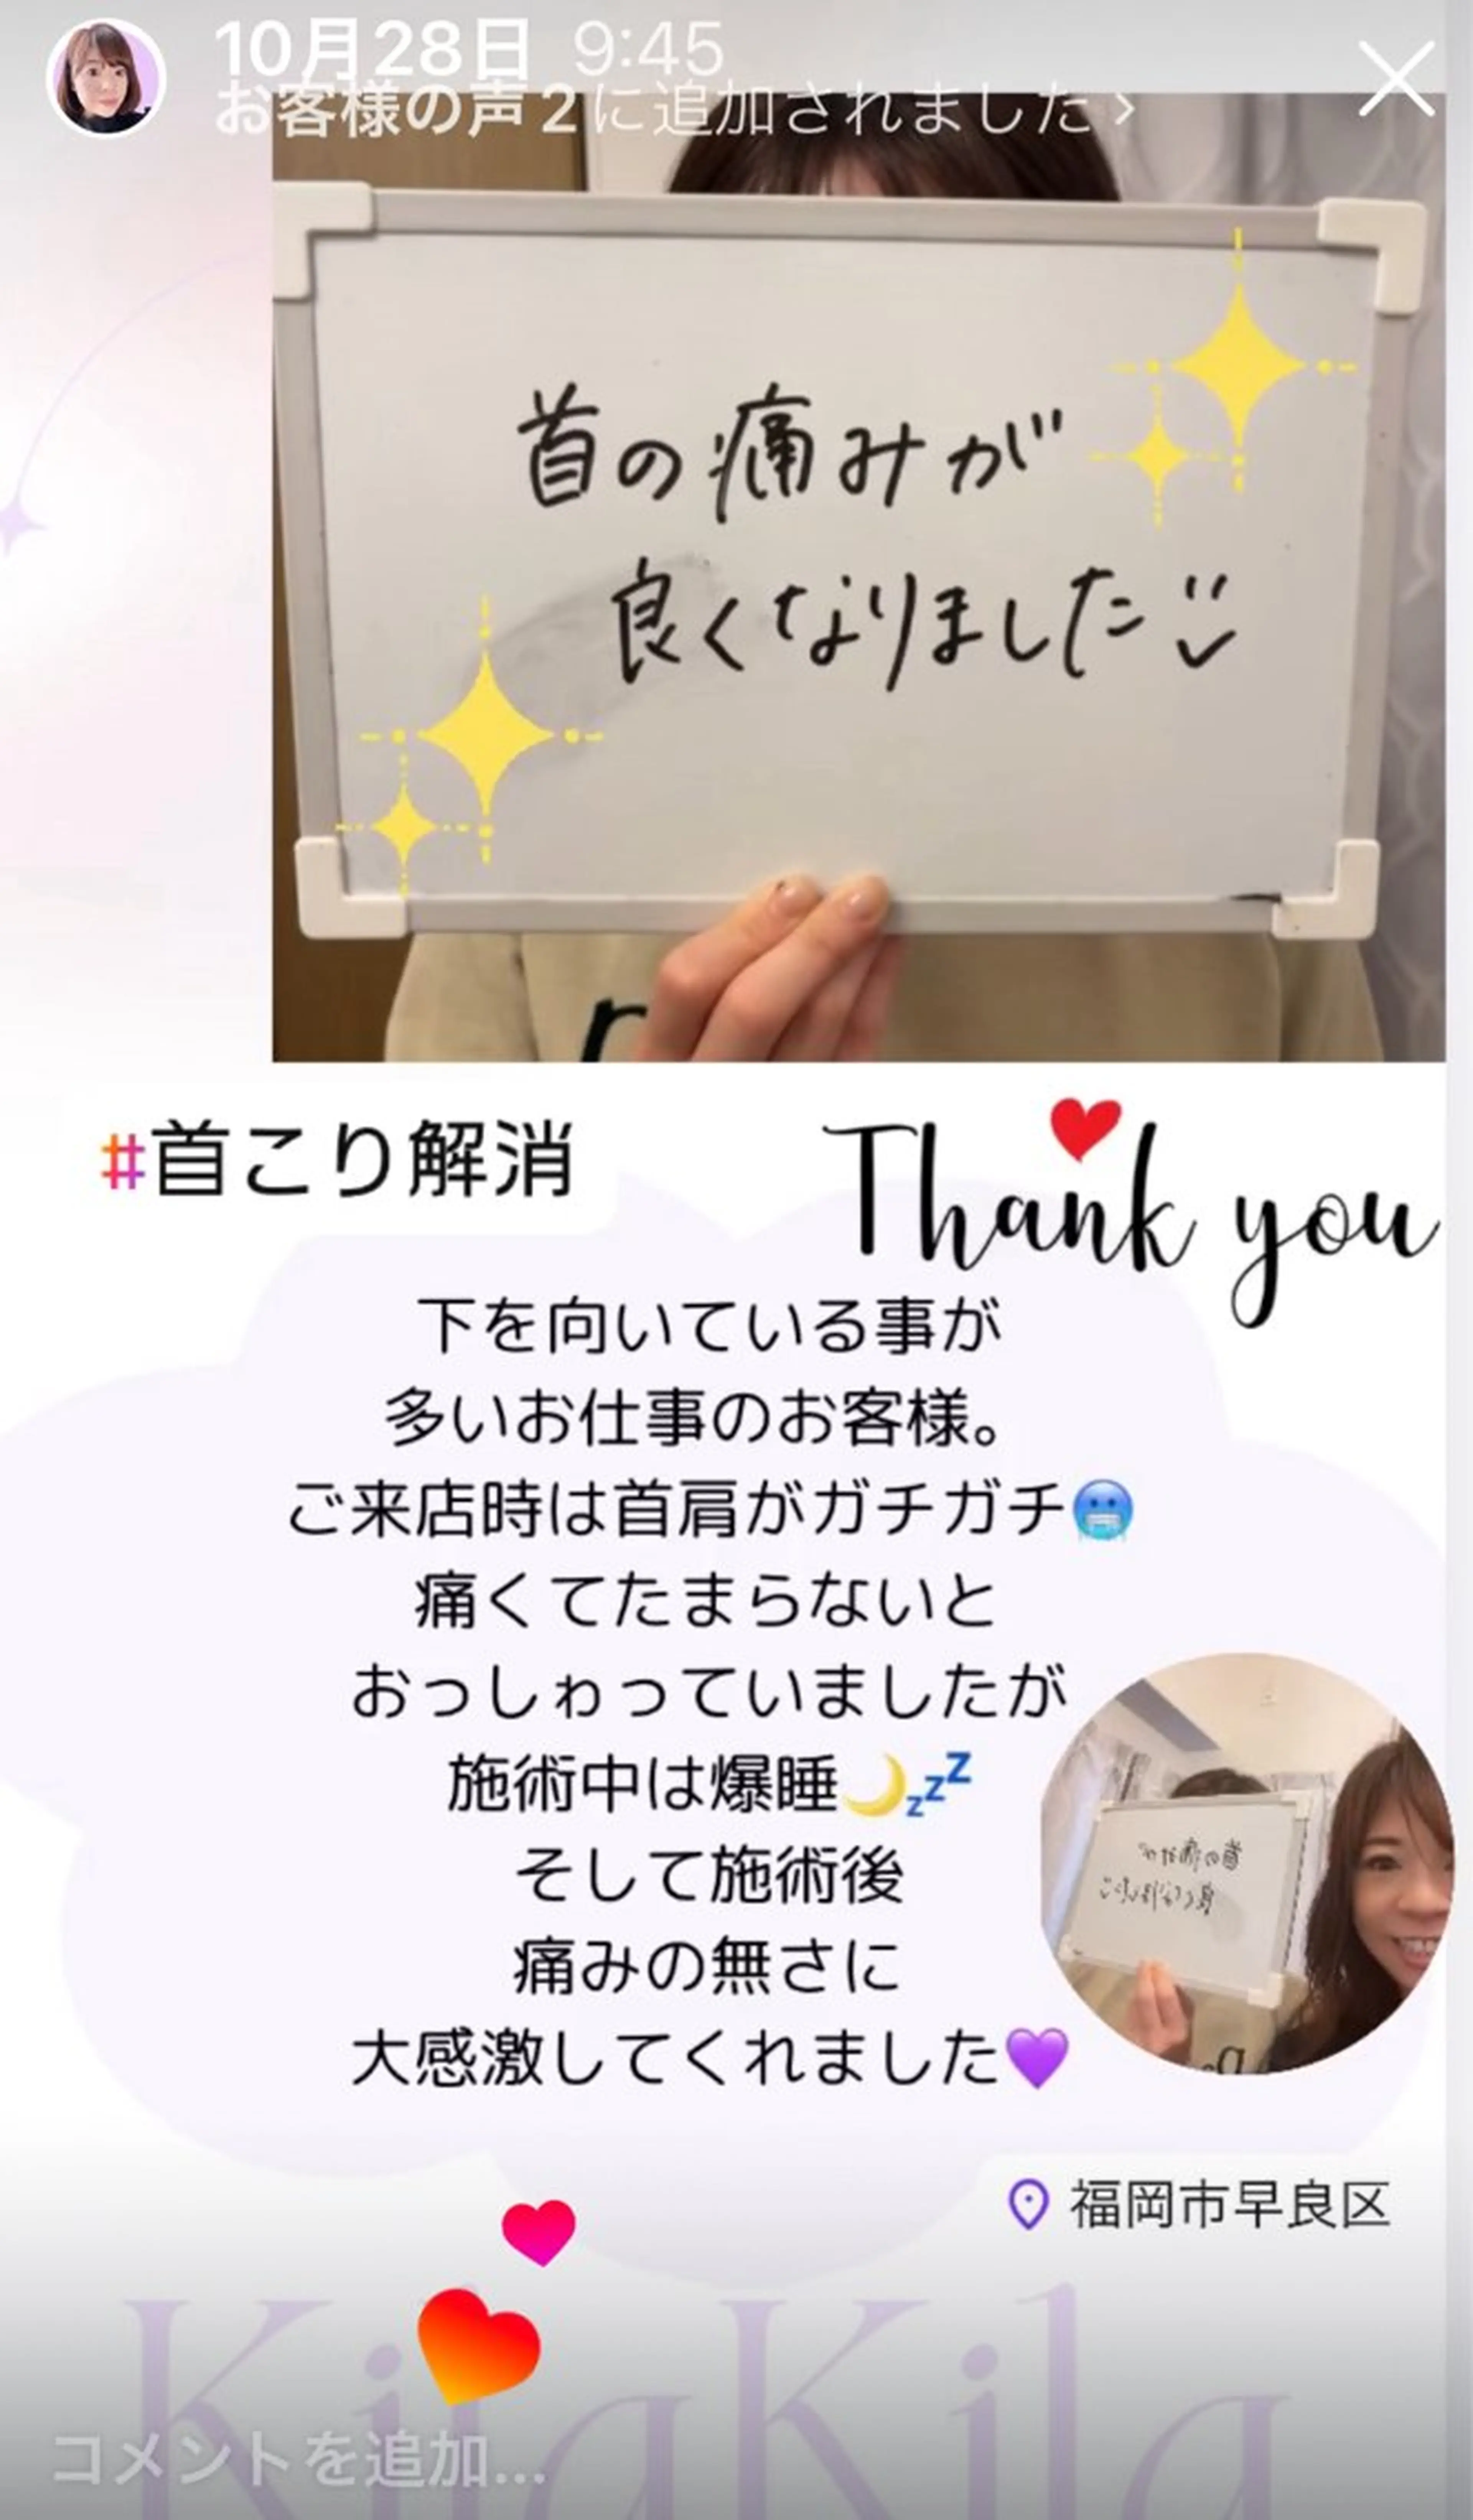 10月28日 9:45
お客様の声2に追加されました >
首の痛みが
良くなりました
#首こり解消
Thank you
下を向いている事が
多いお仕事のお客様。
ご来店時は首肩がガチガチ🥶
痛くてたまらないと
おっしゎっていましたが
施術中は爆睡🌙💤
そして施術後
痛みの無さに
大感激してくれました💜
首の痛みが
良くなりました
福岡市早良区
KilaKila
コメントを追加...